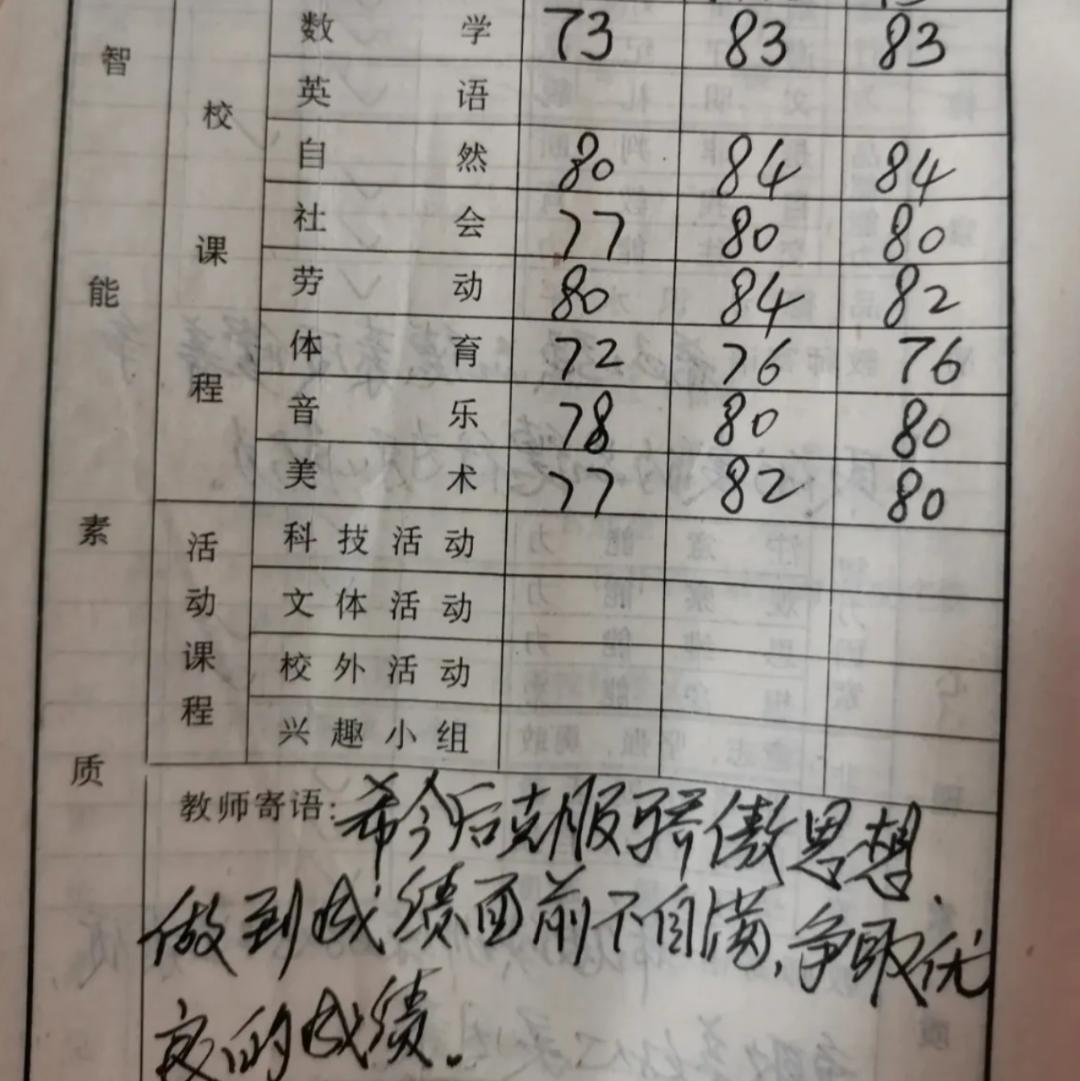 智能素质
校课程
数学 73 83 83
英语
自然 80 84 84
社会 77 80 80
劳动 80 84 82
体育 72 76 76
音乐 78 80 80
美术 77 82 80
活动课程
科技活动
文体活动
校外活动
兴趣小组
教师寄语:希今后克服骄傲思想
做到成绩面前不自满,争取优
良的成绩.